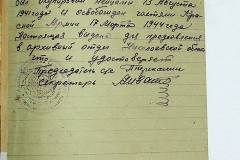 был оккупирован немцами 13 Августа
1941 года и освобожден частями Кра-
сной Армии 17 Марта 1944 года.
Настоящая выдана для предоставления
в архивный отдел Николаевской облас-
и удостоверяет
Председатель
Секретарь